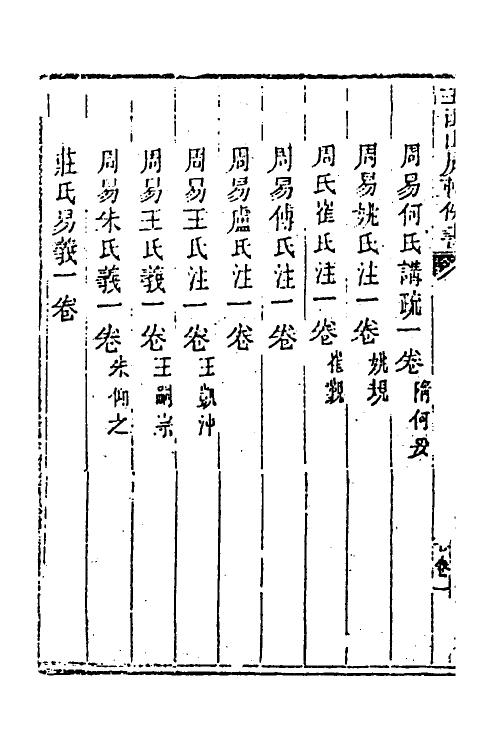 周易何氏講疏一卷隋何妥
周易姚氏注一卷姚規
周氏崔氏注一卷崔覲
周易傅氏注一卷
周易盧氏注一卷
周易王氏注一卷王凱沖
周易王氏義一卷王嗣宗
周易朱氏義一卷朱仰之
莊氏易義一卷